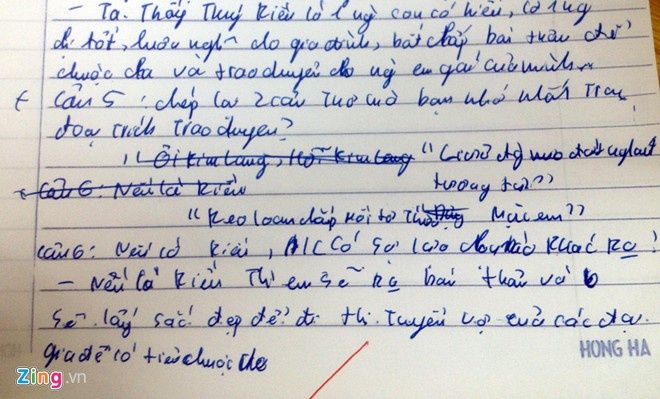 - Ta. Thấy Thuý Kiều là 1 ng con có hiếu, là 1 ng
chị tốt, luôn nghĩ cho gia đình, bất chấp bán thân để
chuộc cha và trao duyên cho ng em gái của mình.
Câu 5: chép lại 2 câu thơ mà bạn nhớ nhất trong
đoạn trích Trao duyên?
" Ôi Kim Lang, Hỡi Kim Lang "Giữa đg
tương tư"
Câu 6: Nếu là Kiều
"Keo loan chắp mối tơ Thừa Mặc em"
Câu 6: Nếu là Kiều, A/C có sự lựa chọn nào khác ko!
- Nếu là Kiều Thì em sẽ ko bán thân và
sẽ lấy sắc đẹp để đi thi tuyển vợ của các đại
gia để có tiền chuộc cha
HONG HA
Zing.vn